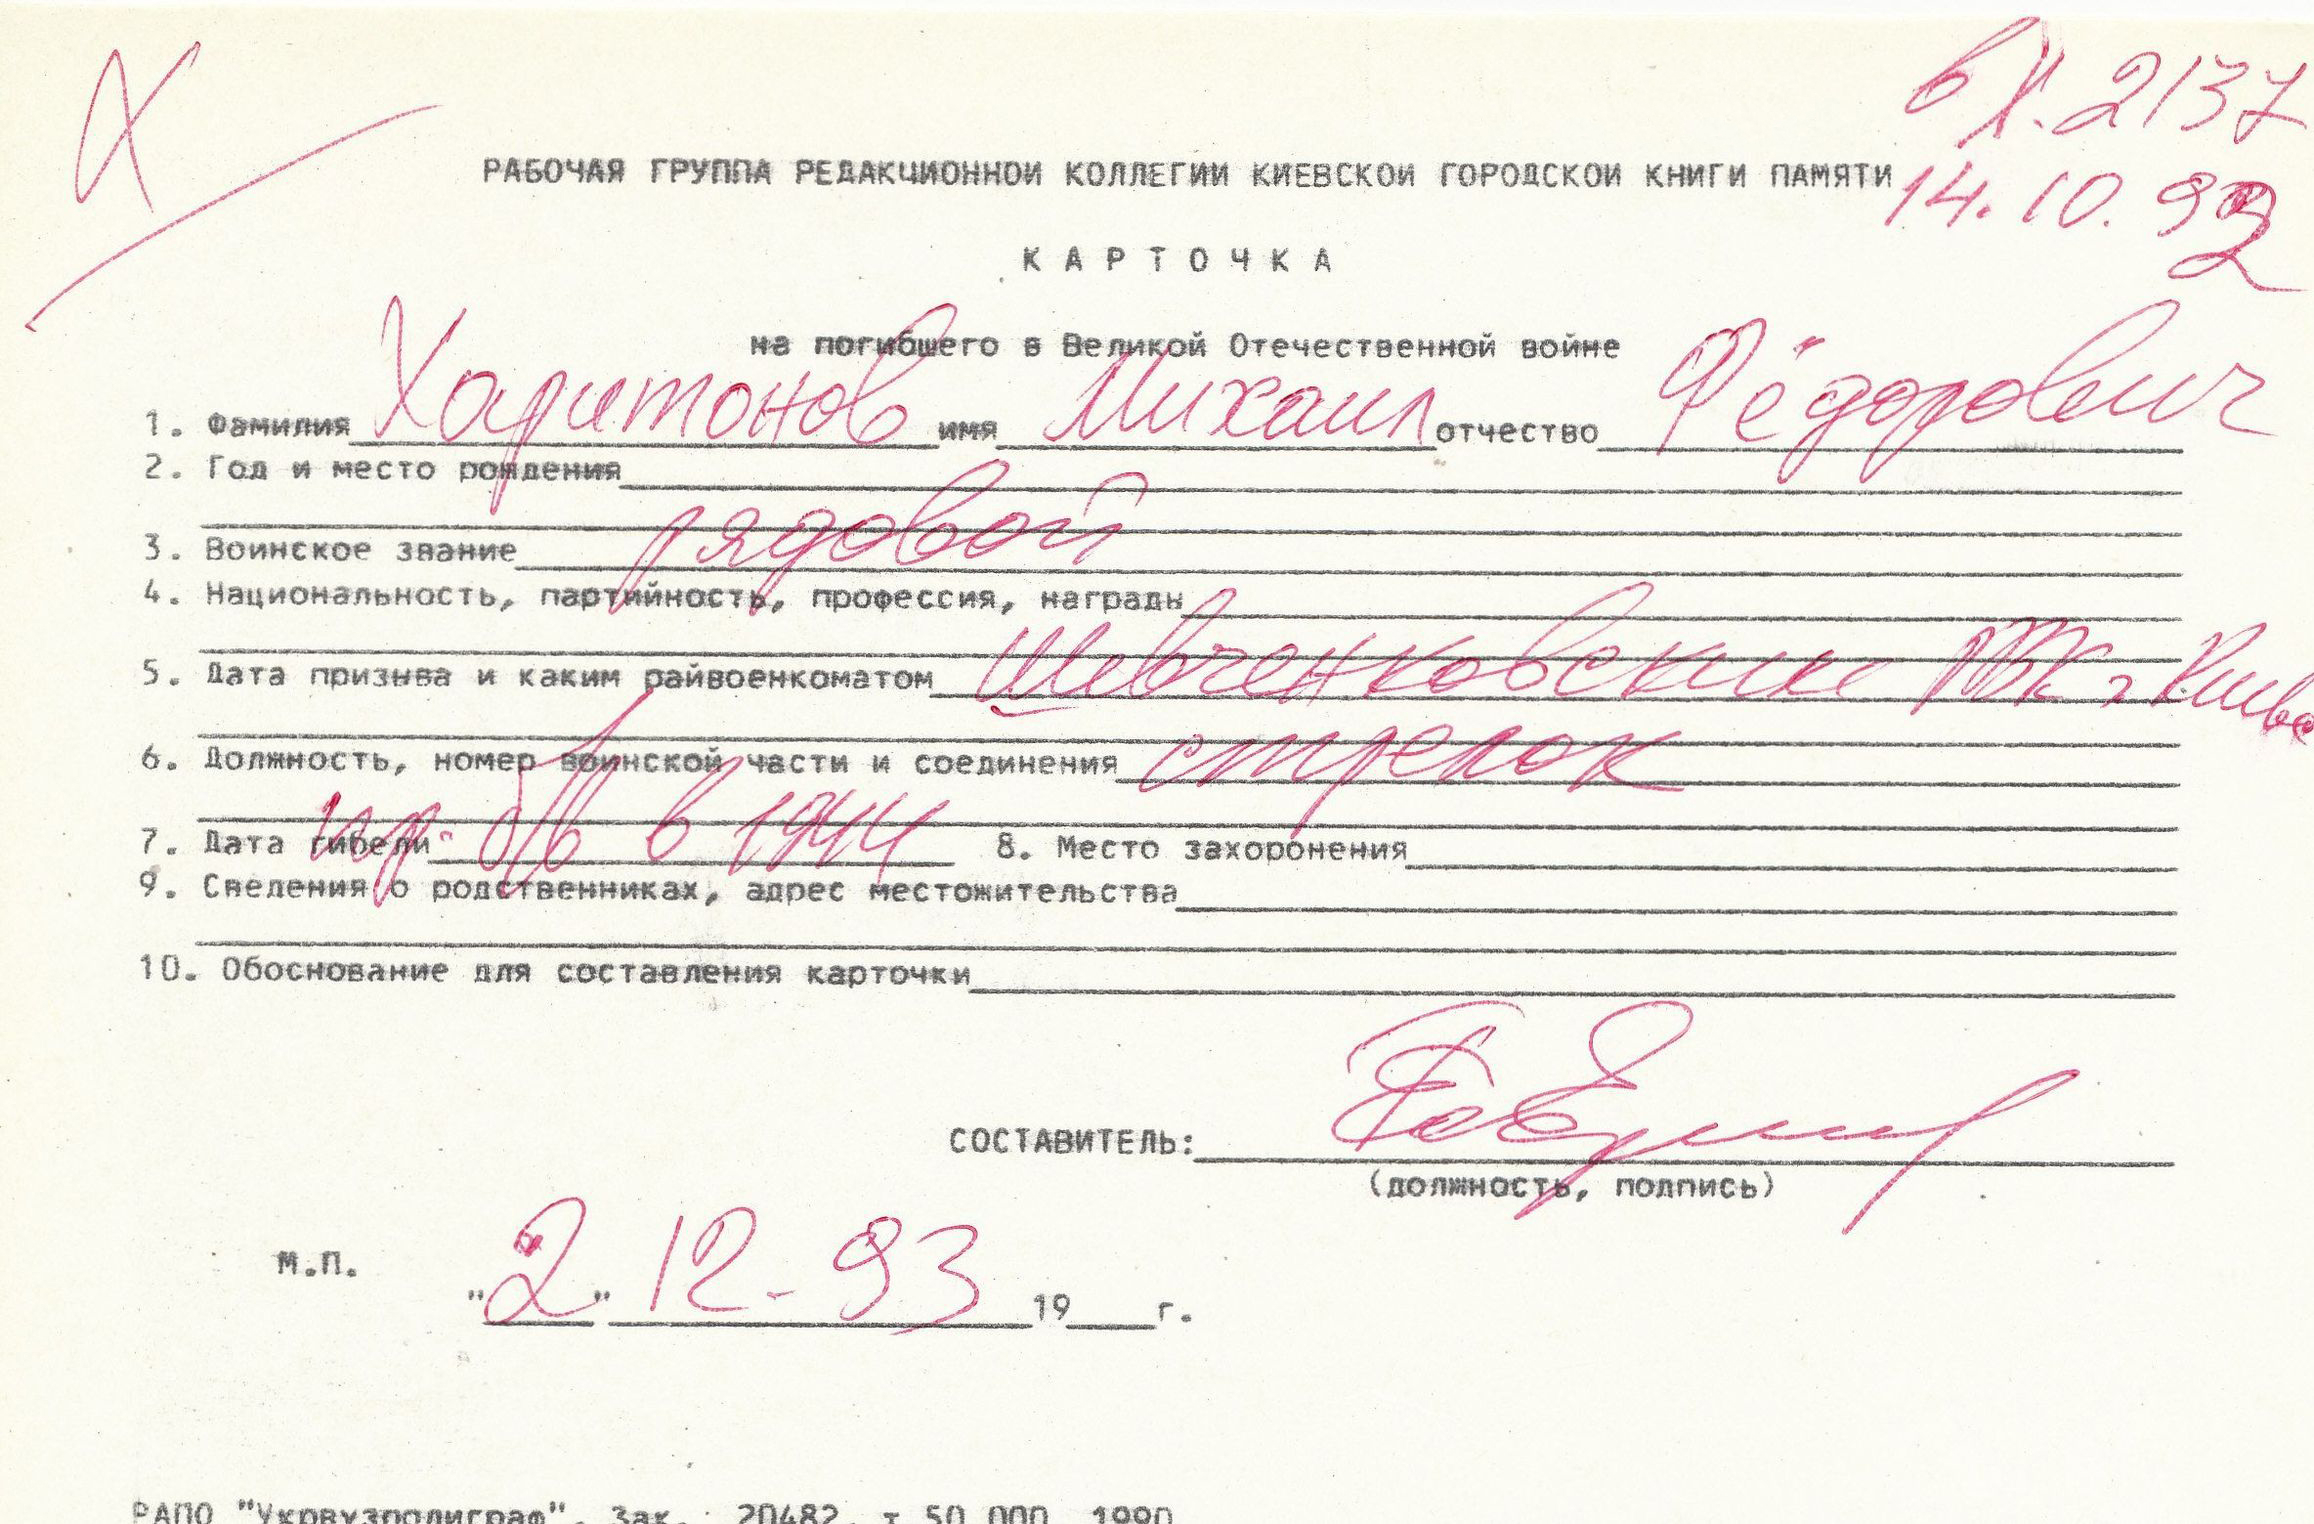 Х
вх. 2137
14.10.92
РАБОЧАЯ ГРУППА РЕДАКЦИОННОЙ КОЛЛЕГИИ КИЕВСКОЙ ГОРОДСКОЙ КНИГИ ПАМЯТИ
К А Р Т О Ч К А
на погибшего в Великой Отечественной войне
1. Фамилия Харитонов имя Михаил отчество Фёдорович
2. Год и место рождения
3. Воинское звание рядовой
4. Национальность, партийность, профессия, награды
5. Дата призыва и каким райвоенкоматом Шевченковским РВК г Киева
6. Должность, номер воинской части и соединения стрелок
7. Дата гибели пр. б/в в 1944 8. Место захоронения
9. Сведения о родственниках, адрес местожительства
10. Обоснование для составления карточки
СОСТАВИТЕЛЬ:
(должность, подпись)
М.П.
"2" 12-93 19 г.
РАПО "Укрвузполиграф". Зак. 20482. т 50 000 1990